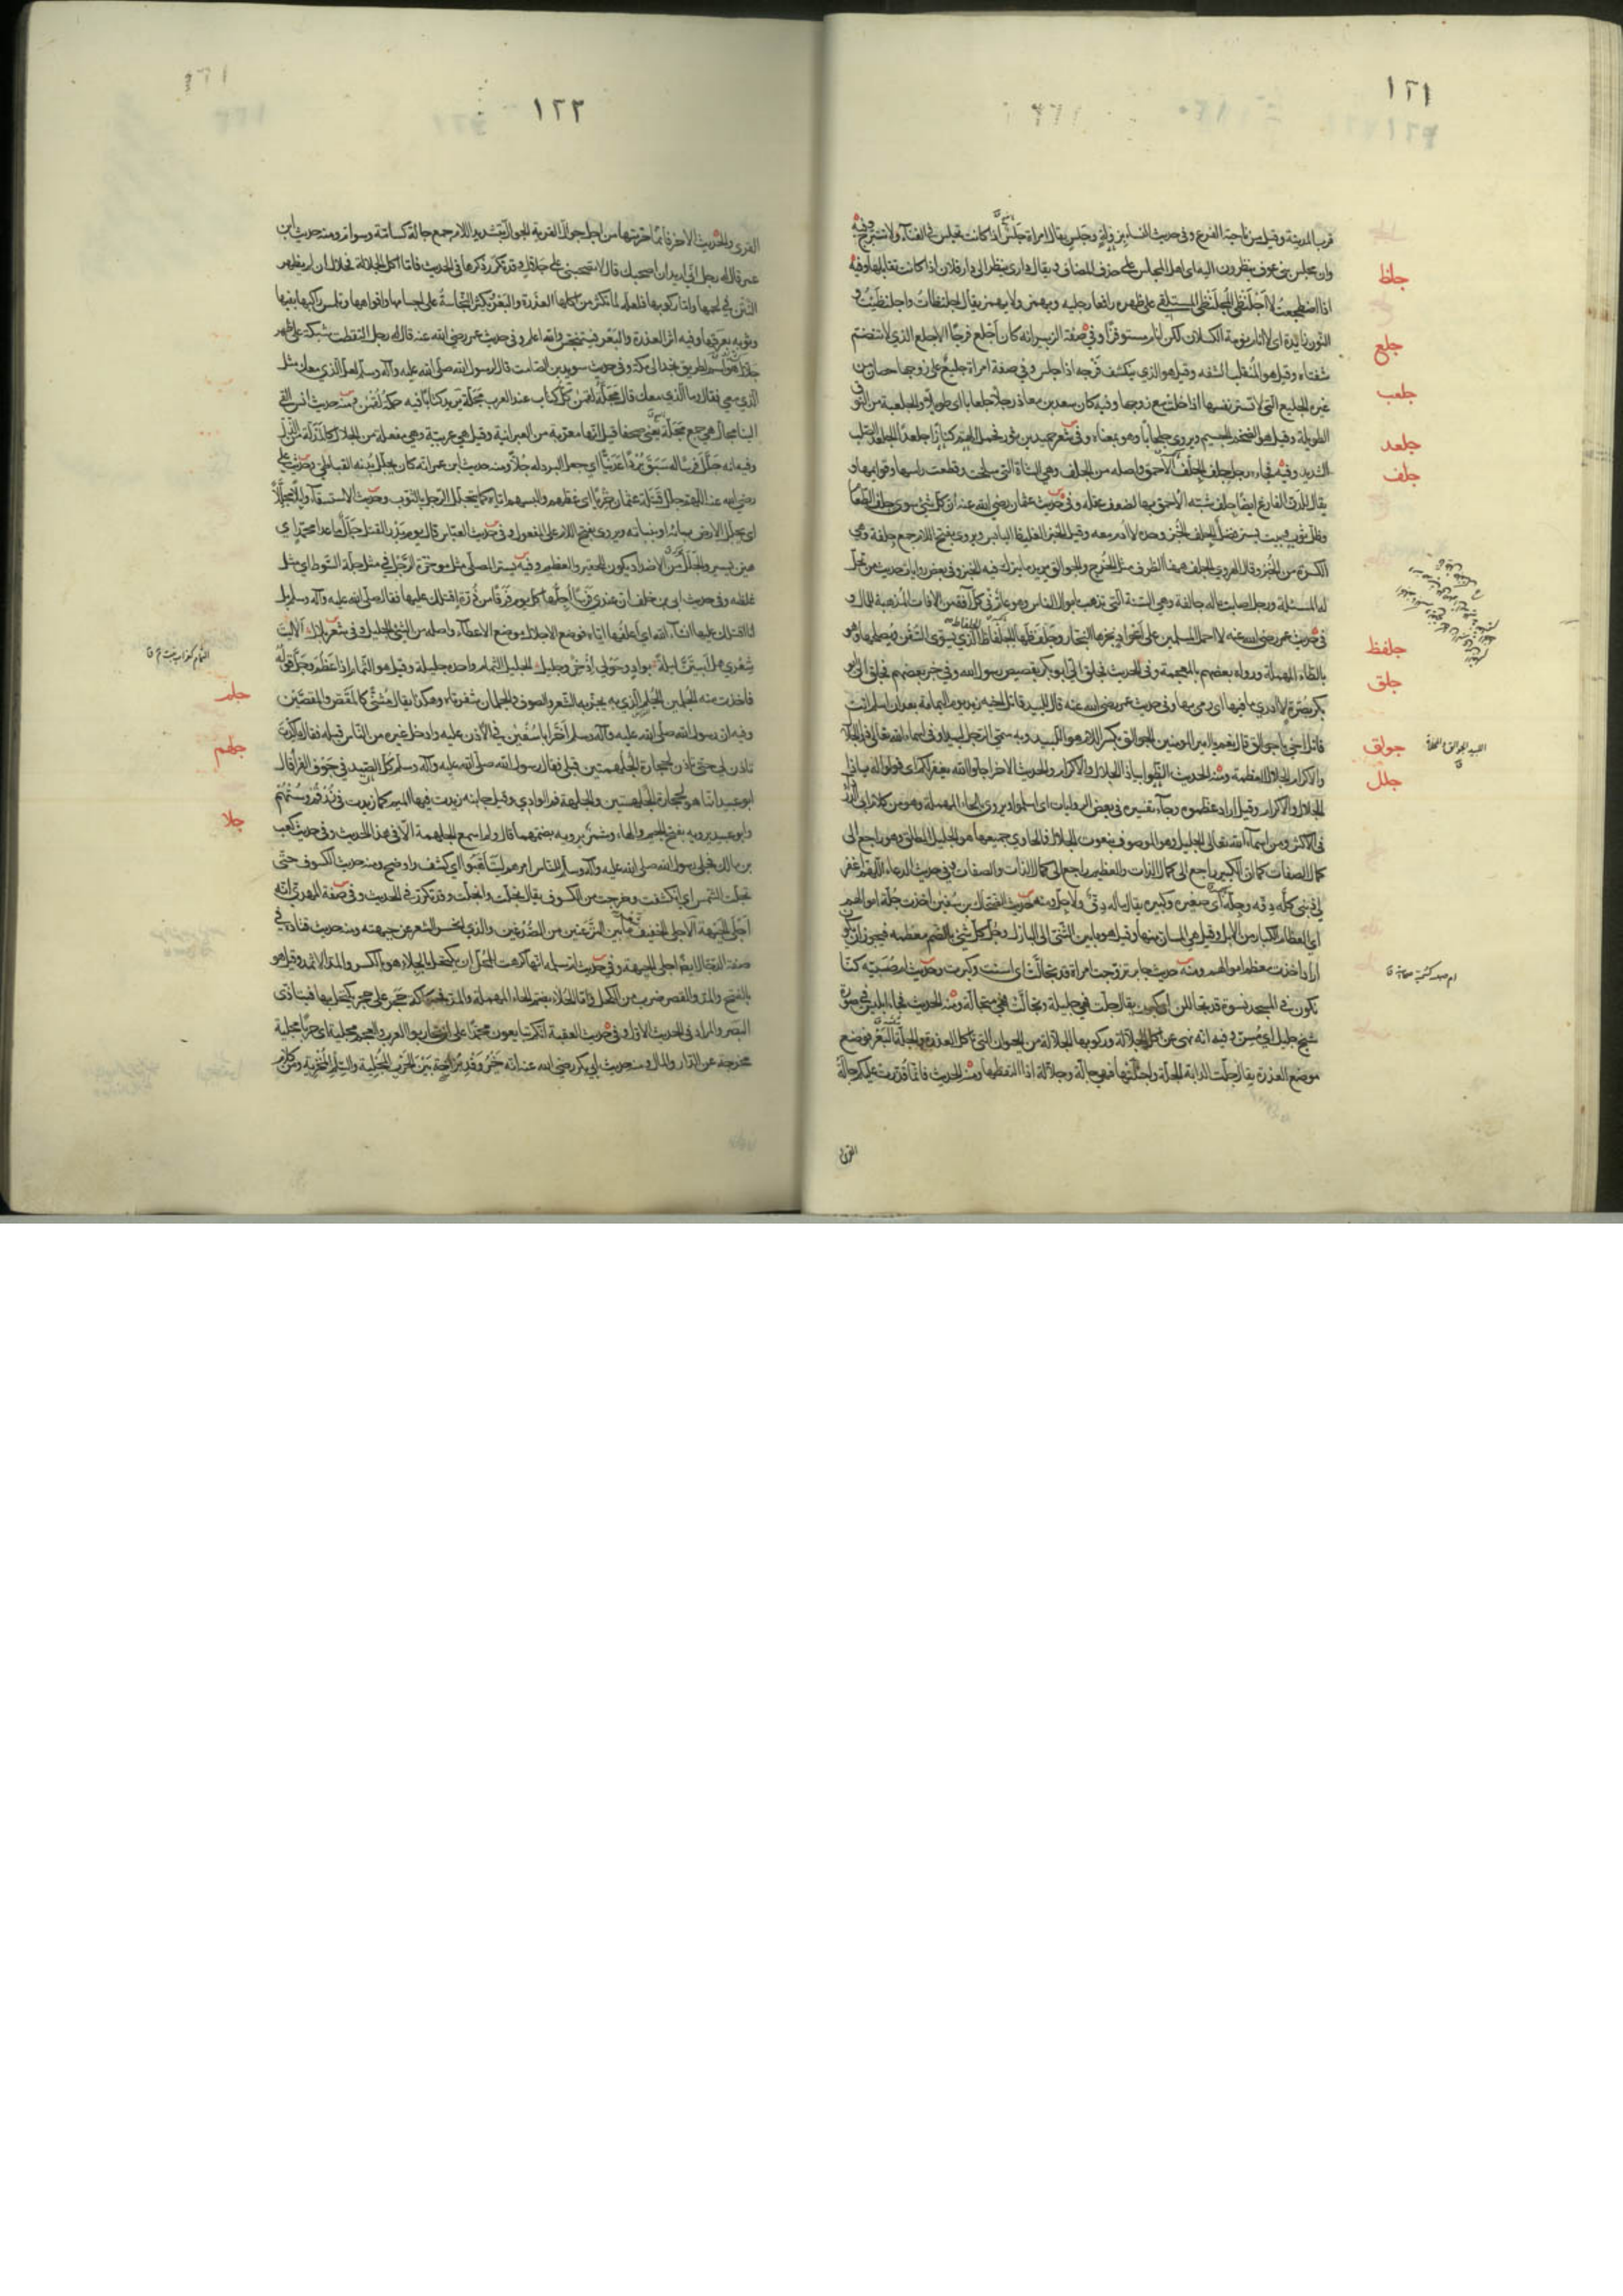 ١٢١
قرب المدينة وقيل من ناحية الفرع وفي حديث النساء بزولة وجلس يقال امراة جلس اذا كانت تجلس في الفناء ولا تتبرج وفيه
وان مجلس بني عوف ينظرون اليه اي اهل المجلس على حذف المضاف يقال داري تنظر الى دار فلان اذا كانت تقابلها وفيه
جلظ
اذا اضطجعت لا اجلنظي المجلنظي المستلقي على ظهره رافعا رجليه ويهمز ولا يهمز يقال اجلنظأت واجلنظيت و
النون زائدة اي لا انام نومة الكسلان لكن انام مستوفزا وفي صفة الزبير انه كان اجلع فرجا الاجلع الذي لا تنضم
جلع
شفتاه وقيل هو المنقلب الشفه وقيل هو الذي ينكشف فرجه اذا جلس وفي صفة امراة جليع على زوجها حصان من
غيره الجليع التي لا تستر نفسها اذا خلت مع زوجها وفيه كان سعد بن معاذ رجلا جلعابا اي طويلا والجلعبة من النوق
جلعب
الطويلة وقيل هو الضخم الجسيم ويروى جلحابا وهو بمعناه وفي شعر حميد بن ثور فحمل الهم كنازا جلعدا الجلعد الصلب
جلعد
الشديد وفيه فجاءه رجل جلف الجلف الاحمق واصله من الجلف وهي الشاة التي سلخت وقطعت راسها وقوايمها و
جلف
يقال للدن الفارغ ايضا جلف شبه الاحمق بها لضعف عقله وفي حديث عثمان رضي الله عنه ان كل شيء سوى جلف الطعام
وظل ثوب وبيت يستر فضل الجلف الخبز وحده لا ادم معه وقيل الخبز الغليظ اليابس ويروى بفتح اللام جمع جلفة وهي
الكسرة من الخبز وقال الهروي الجلف ههنا الظرف مثل الخرج والجوالق يريد ما يترك فيه الخبز وفي بعض روايات حديث من تحل
له المسئلة ورجل اصابت ماله جالفة وهي السنة التي تذهب باموال الناس وهو عام في كل آفة من الافات المذهبة للمال و
في حديث عمر رضي الله عنه لا احمل المسلمين على اعواد نجرها النجار وجلفظها الجلفاظ الجلفاظ الذي يسوي السفن ويصلحها وهو
جلفظ
بالطاء المهملة ورواه بعضهم بالمعجمة وفي الحديث
جلق
قاتل اخي يا جوالق قال نعم يا امير المؤمنين الجوالق بكسر اللام هو اللبيد وبه سمي الرجل لبيدا وفي اسماء الله تعالى ذو الجلال
جوالق
اللبيد الجوالق والمخلاة ق
والاكرام الجلال العظمة ومنه الحديث الظوا بياذا الجلال والاكرام والحديث الاخر اجلوا الله يغفر لكم اي قولوا له ياذا
جلل
الجلال والاكرام وقيل اراد عظموه وجاء تفسيره في بعض الروايات اي اسلموا ويروى بالحاء المهملة وهو من كلام ابي الدرداء
في الاكثر ومن اسماء الله تعالى الجليل وهو الموصوف بنعوت الجلال والحاوي جميعها هو الجليل المطلق وهو راجع الى
كمال الصفات كما ان الكبير راجع الى كمال الذات والعظيم راجع الى كمال الذات والصفات وفي حديث الدعاء اللهم اغفر
لي ذنبي كله دقه وجله اي صغيره وكبيره يقال ماله دق ولا جل ومنه حديث الضحاك بن سفين اخذت جلة اموالهم
اي العظام الكبار من الابل وقيل هي المسان منها وقيل هو ما بين الثني الى البازل وجل كل شيء بالضم معظمه فيجوز ان يكون
اراد اخذت معظم اموالهم ومنه حديث جابر تزوجت امراة قد تجالت اي اسنت وكبرت وحديث ام صبية كنا
ام صبية كسمية صحابية ق
نكون في المسجد نسوة قد تجاللن اي كبرن يقال جلت فهي جليلة وتجالت فهي متجالة ومنه الحديث فجاء ابليس في صورة
شيخ جليل اي مسن وفيه انه نهى عن اكل الجلالة وركوبها الجلالة من الحيوان التي تاكل العذرة والجلة البعر فوضع
موضع العذرة يقال جلت الدابة الجلة واجتلتها فهي جالة وجلالة اذا التقطها ومنه الحديث فانما قذرت عليكم جالة
القرى
١٢٢
القرى والحديث الاخر فانما حرمتها من اجل جوال القرية الجوال بتشديد اللام جمع جالة كسامة وسوام ومنه حديث ابن
عمر قال له رجل اني اريد ان اصحبك قال لا تصحبني على جلال وقد تكرر ذكرها في الحديث فاما اكل الجلالة فحلال ان لم يظهر
النتن في لحمها واما ركوبها فلعله لما تكثر من اكلها العذرة والبعر وتكثر النجاسة على اجسامها وافواهها وتلمس راكبها بفمها
وثوبه بعرقها وفيه اثر العذرة والبعر فيتنجس والله اعلم وفي حديث عمر رضي الله عنه قال له رجل التقطت شبكة على ظهر
جلال هو اسم لطريق نجد الى مكة وفي حديث سويد بن الصامت قال لرسول الله صلى الله عليه وآله وسلم لعل الذي معك مثل
الذي معي فقال وما الذي معك قال مجلة لقمن كل كتاب عند العرب مجلة يريد كتابا فيه حكمة لقمن ومنه حديث انس القي
الينا مجال هي جمع مجلة يعني صحفا قيل انها معربة من العبرانية وقيل هي عربية وهي مفعلة من الجلال كالمذلة من الذل
وفيه انه جلل فرسا له سبق بردا عدنيا اي جعل البرد له جلا ومنه حديث ابن عمر انه كان يجلل بدنه القباطي وحديث علي
رضي الله عنه اللهم جلل قتلة عثمان خزيا اي غطهم به والبسهم اياه كما يتجلل الرجل بالثوب وحديث الاستسقاء وابلا مجللا
اي يجلل الارض بمائه او بنباته ويروى بفتح اللام على المفعول وفي حديث العباس قال يوم بدر القتل جلل ما عدا محمدا اي
هين يسير والجلل من الاضداد يكون للحقير والعظيم وفيه يستر المصلي مثل موخرة الرحل في مثل جلة السوط اي مثل
غلظه وفي حديث ابي بن خلف ان عندي فرسا اجلها كل يوم فرقا من ذرة اقتلك عليها فقال صلى الله عليه وآله وسلم بل
انا اقتلك عليها ان شاء الله اي اعلفها اياه فوضع الاجلال موضع الاعطاء واصله من الشيء الجليل وفي شعر بلال الا ليت
شعري هل ابيتن ليلة بواد وحولي اذخر وجليل الجليل الثمام واحده جليلة وقيل هو الثمام اذا عظم وجل قوله
الثمام كغراب نبت م ق
فاخذت منه بالجلمين الجلم الذي به يجز به الشعر والصوف والجلمان شفرتاه وهكذا يقال مثنى كالمقص والمقصين
جلم
وفيه ان رسول الله صلى الله عليه وآله وسلم اخر ابا سفين في الاذن عليه وادخل غيره من الناس قبله فقال ما كدت
تاذن لي حتى تاذن لحجارة الجلهمتين قبلي فقال رسول الله صلى الله عليه وآله وسلم كل الصيد في جوف الفرا قال
جلهم
ابو عبيد انما هو لحجارة الجلهتين والجلهة فم الوادي وقيل جانبه زيدت فيها الميم كما زيدت في زرقم وستهم
وابو عبيد يرويه بفتح الجيم والهاء وشمر يرويه بضمهما قال ولم اسمع الجلهمة الا في هذا الحديث وفي حديث كعب
جلا
بن مالك فجلى رسول الله صلى الله عليه وآله وسلم للناس امرهم ليتأهبوا اي كشف واوضح ومنه حديث الكسوف حتى
تجلت الشمس اي انكشفت وخرجت من الكسوف يقال تجلت وانجلت وقد تكرر في الحديث وفي صفة المهدي انه
اجلى الجبهة الاجلى الخفيف ما بين النزعتين من الصدغين والذي انحسر الشعر عن جبهته ومنه حديث قتادة في
صفة الدجال ايضا اجلى الجبهة وفي حديث ام سلمة انها كرهت للمحد ان تكتحل بالجلاء هو بالكسر والمد الاثمد وقيل هو
بالفتح والمد والقصر ضرب من الكحل واما الحلاء بضم الحاء المهملة والمد فحكاكة حجر على حجر يكتحل بها فيتاذى
البصر والمراد في الحديث الاول وفي حديث العقبة انكم تبايعون محمدا على ان تحاربوا العرب والعجم مجلية اي حربا مجلية
مخرجة عن الدار والمال ومنه حديث ابي بكر رضي الله عنه انه خير وفد بزاخة بين الحرب المجلية والسلم المخزية ومن كلام